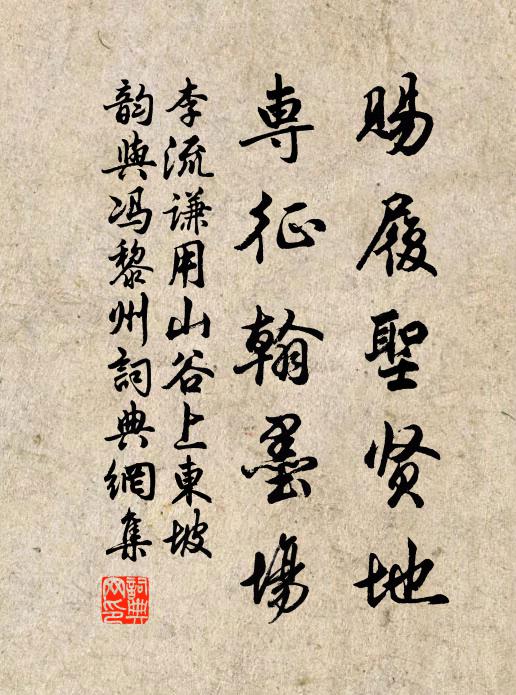 赐履聖贤地
専征翰墨場
李流谦用山谷上東坡
韵與冯黎州詞典網集
詞典网印